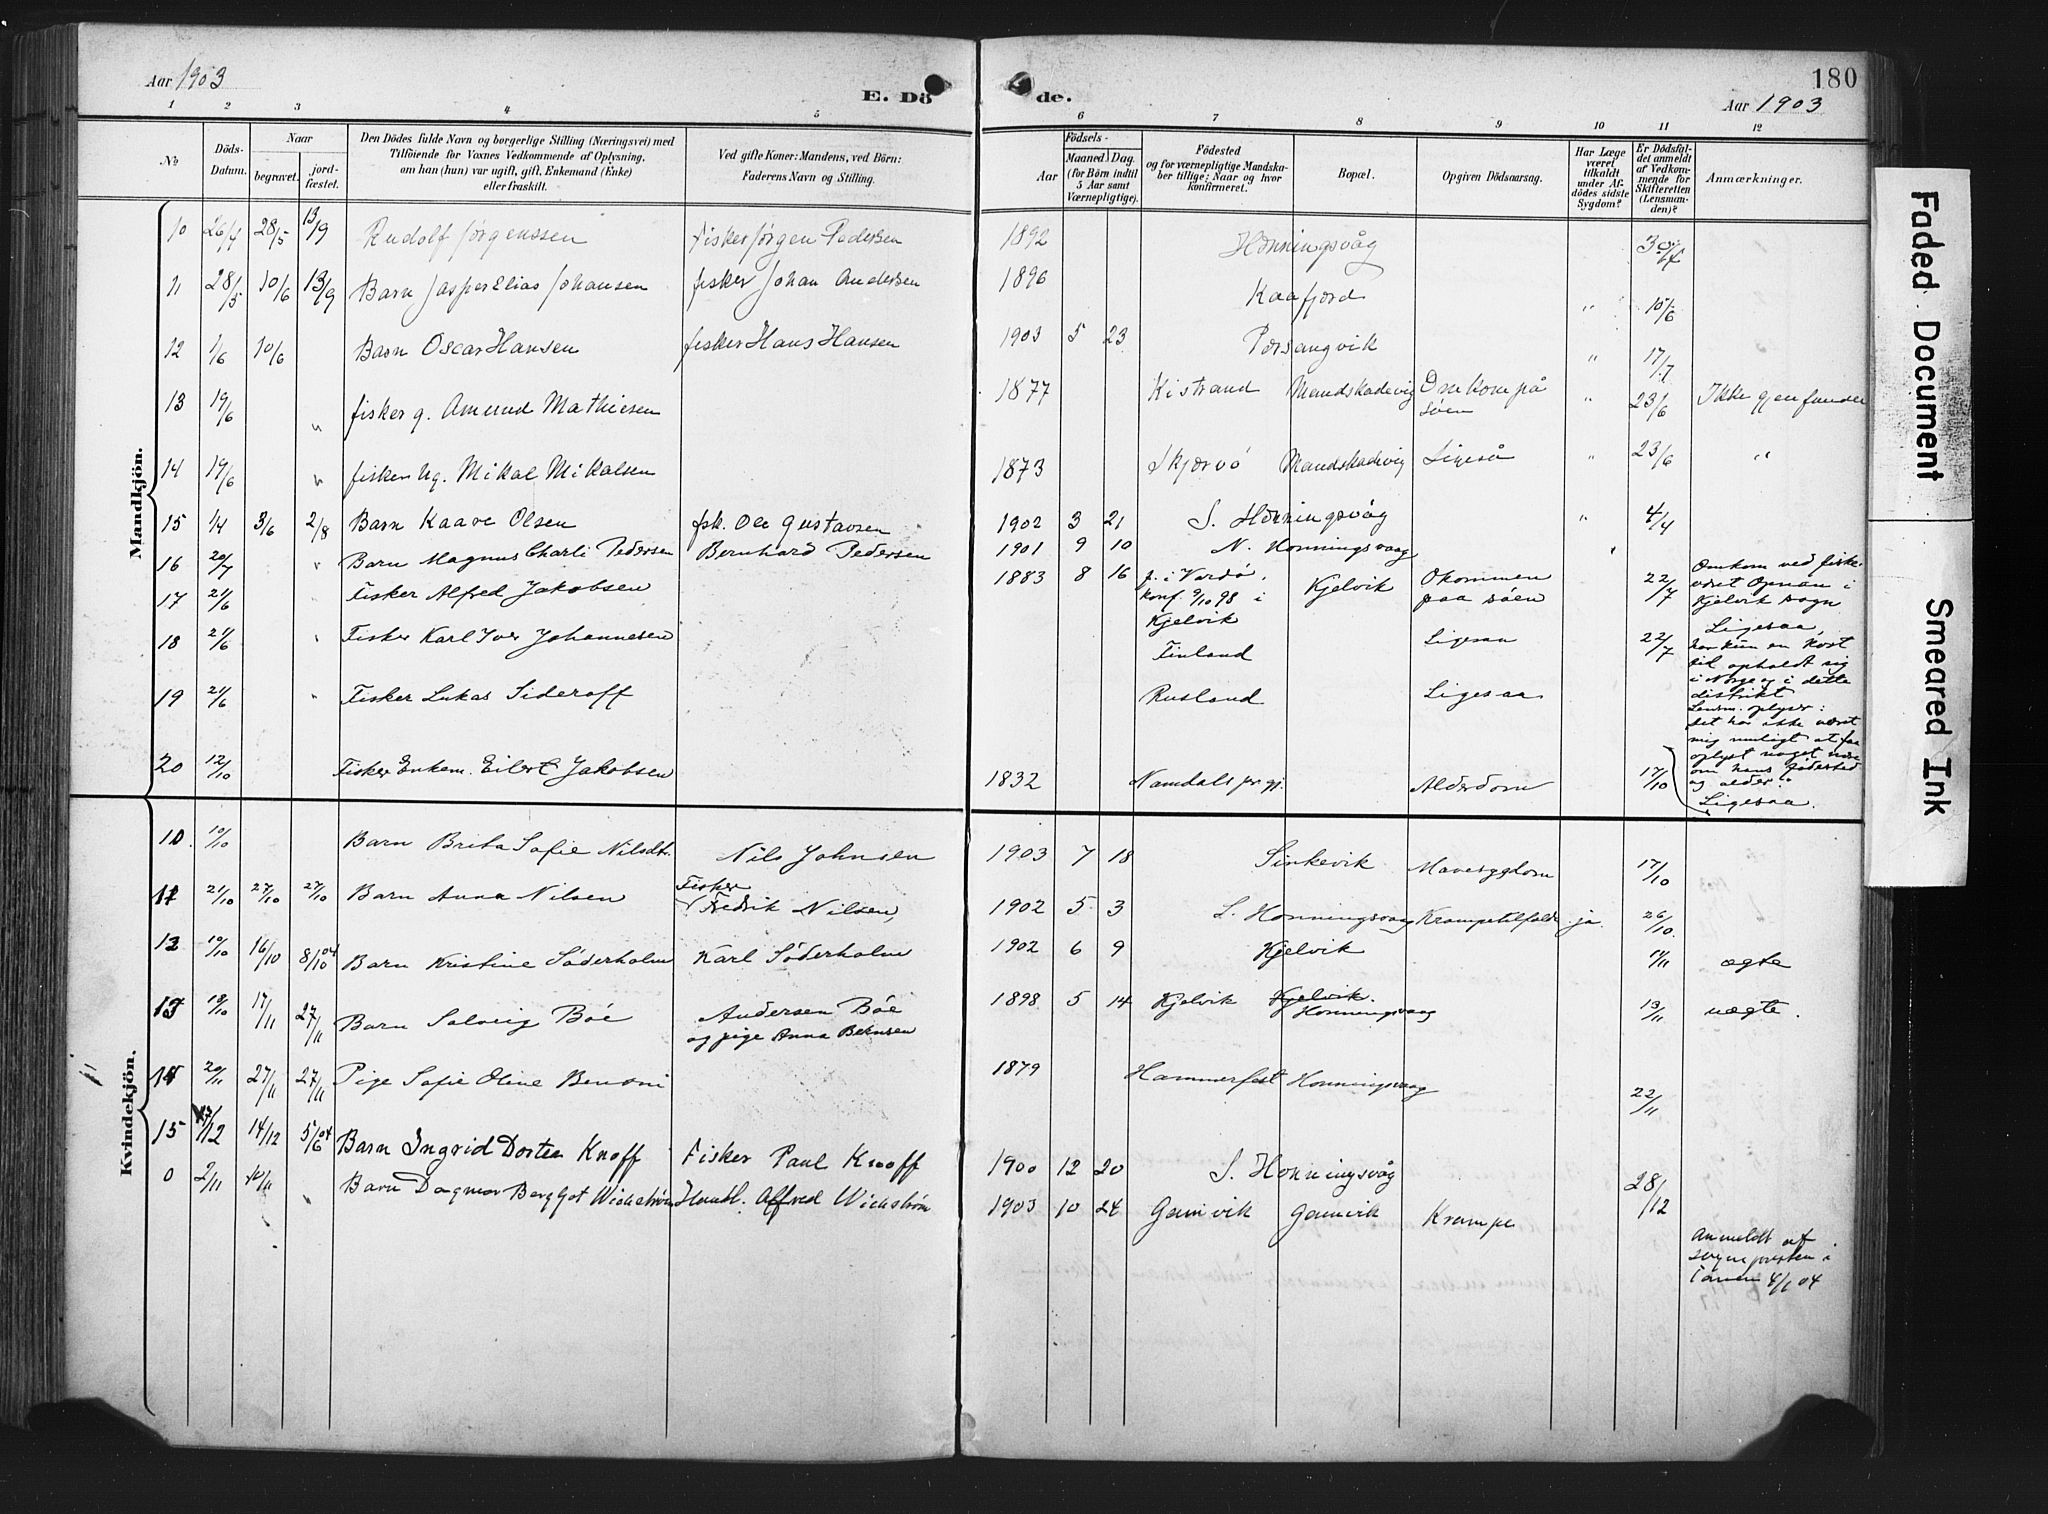 Aar 1903
E. Dö de.
180
Aar 1903
1 2 3 4 5 6 7 8 9 10 11 12
No
Döds-Datum.
Naar
begravet.
jord-fæstet.
Den Dödes fulde Navn og borgerlige Stilling (Næringsvei) med
Tilföiende for Voxnes Vedkommende af Oplysning,
om han (hun) var ugift, gift, Enkemand (Enke)
eller fraskilt.
Ved gifte Koner: Mandens, ved Börn:
Faderens Navn og Stilling.
Födsels-
Aar
Maaned. Dag.
(for Börn indtil
5 Aar samt
Værnepligtige).
Födested
og for værnepligtige Mandska-
ber tillige: Naar og hvor
konfirmeret.
Bopæl.
Opgiven Dödsaarsag.
Har Læge
været
tilkaldt
under Af-
dödes sidste
Sygdom?
Er Dödsfal-
det anmeldt
af Vedkom-
mende for
Skifteretten
(Lensman-
den)?
Anmærkninger.
Mandkjön.
10 26/4 28/5 13/9 Rudolf Jørgenssen fisker Jörgen Pedersen 1892 Honningsvåg
11 28/5 10/6 13/9 Barn Jasper Elias Johansen fisker Johan Andersen 1896 Kaafjord " 10/6
12 1/6 10/6 Barn Oscar Hansen fisker Hans Hansen 1903 5 23 Porsangvik " 17/7
13 19/6 " fisker g. Amund Mathiesen 1877 Kistrand Mandskadevig Omkom på søen " 23/6 Ikke gjenfunden
14 19/6 " fisker ug. Mikal Mikalsen 1873 Skjærvö Mandskadevig Ligeså " 23/6 "
15 1/4 3/6 2/8 Barn Kaare Olsen fsk. Ole Gustavsen 1902 3 21 S. Honningsvåg " 4/4
16 20/7 " Barn Magnus Charli Pedersen Bernhard Pedersen 1901 9 10 N. Honningsvaag "
17 21/6 Fisker Alfred Jakobsen 1883 8 16 f. i Vardö, konf. 9/10 98 i Kjelvik Kjelvik Okommen paa söen 22/7 Omkom ved fiske-
været Opnan i
Kjelvik sogn
18 21/6 " Fisker Karl Iver Johannesen Finland Ligesaa 22/7 Ligesaa,
har kun en kort
tid opholdt sig
i Norge og i dette
distrikt
19 21/6 " Fisker Lukas Sideroff Rusland Ligesaa Lensm. oplyser:
det har ikke været
mig muligt at faa
oplyst noget
om hans födested
og alder."
20 12/10 Fisker Enkem. Eilert Jakobsen 1832 Namdals pr.gj. Alderdom 17/10 Ligesaa.
Kvindekjön.
10. 10/10 Barn Brita Sofie Nilsdt. Nils Johnsen 1903 7 18 Sinkevik Mavesygdom 17/10
11 21/10 27/10 27/10 Barn Anna Nilsen Fisker Fredrik Nilsen, 1902 5 3 S. Honningsvaag Krampetilfælde ja. 26/10.
12 10/10 16/10 8/10 04 Barn Kristine Söderholm Karl Söderholm 1902 6 9 Kjelvik 11/11 ægte
13 18/10 17/11 27/11 Barn Solveig Böe Andersen Böe
og pige Anna Berntsen 1898 5 14 Kjelvik Kjelvik. Honningsvaag 13/11 uægte.
14 20/11 27/11 27/11 Pige Sofie Oline Benoni 1879 Hammerfest Honningsvaag 22/11
15 14/12 5/6 04 Barn Ingrid Dortea Knoff Fisker Paul Knoff 1900 12 20 S. Honningsvåg 28/12
0 2/11 10/11 " Barn Dagmar Bergljot Wickström Handl. Alfred Wickström 1903 10 24 Gamvik Gamvik Krampe
Anmeldt af
sogneprästen i
Tanen 4/1 04
Faded Document
Smeared Ink